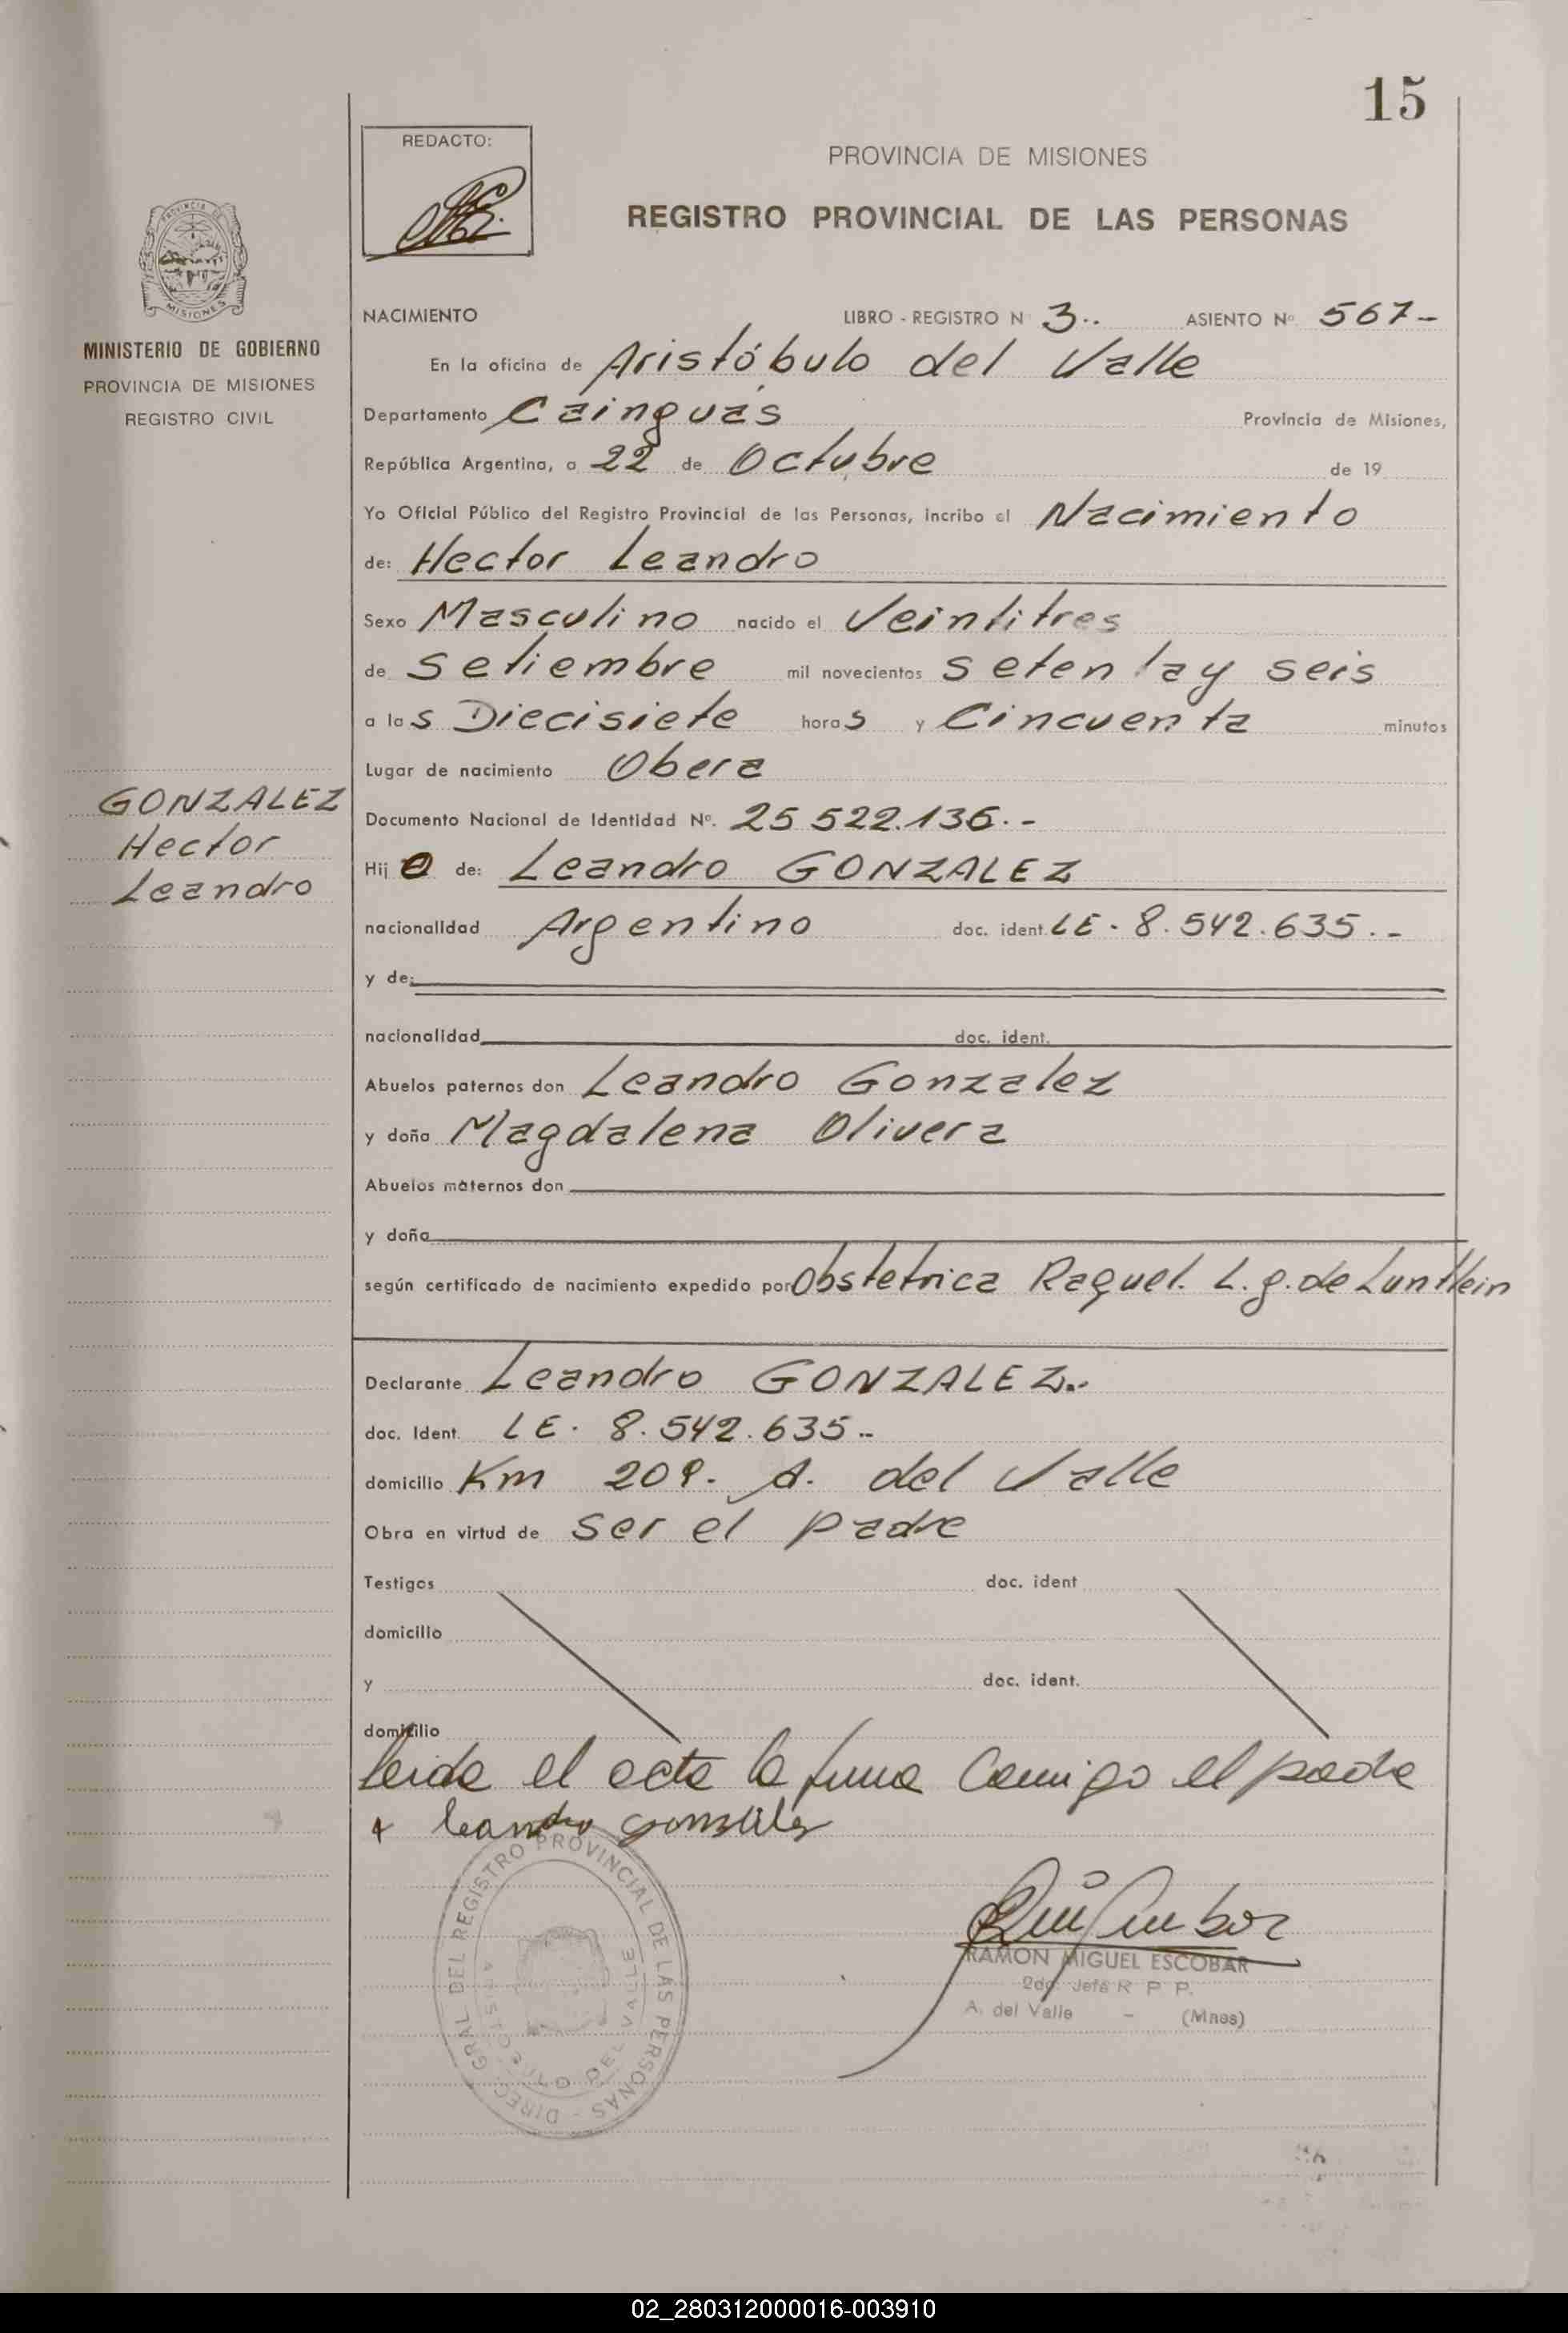 15
REDACTO:
PROVINCIA DE MISIONES
REGISTRO PROVINCIAL DE LAS PERSONAS
MINISTERIO DE GOBIERNO
PROVINCIA DE MISIONES
REGISTRO CIVIL
NACIMIENTO LIBRO - REGISTRO N 3.. ASIENTO Nº 567-
En la oficina de Aristóbulo del Valle
Departamento Cainguás Provincia de Misiones,
República Argentina, a 22 de Octubre de 19
Yo Oficial Público del Registro Provincial de las Personas, incribo el Nacimiento
de: Hector Leandro
Sexo Masculino nacido el Veintitres
de Setiembre mil novecientos setenta y seis
a las Diecisiete horas y Cincuenta minutos
Lugar de nacimiento Obera
GONZALEZ
Hector
Leandro
Documento Nacional de Identidad Nº. 25 522.136.-
Hijo de: Leandro GONZALEZ
nacionalidad Argentino doc. ident. LE - 8.542.635.-
y de:
nacionalidad doc. ident.
Abuelos paternos don Leandro Gonzalez
y doña Magdalena Olivera
Abuelos maternos don
y doña
según certificado de nacimiento expedido por Obstetrica Raquel. L. g. de
Declarante Leandro GONZALEZ.-
doc. Ident. LE. 8.542.635--
domicilio Km 209. A. del Valle
Obra en virtud de ser el padre
Testigos doc. ident
domicilio
y doc. ident.
domicilio
Leida el acta la firma Comigo el padre
Leandro gonsales
DIREC. GRAL DEL REGISTRO PROVINCIAL DE LAS PERSONAS -
ARISTOBULO DEL VALLE
RAMON MIGUEL ESCOBAR
2do. Jefe R P P.
A. del Valle - (Mnes)
02_280312000016-003910